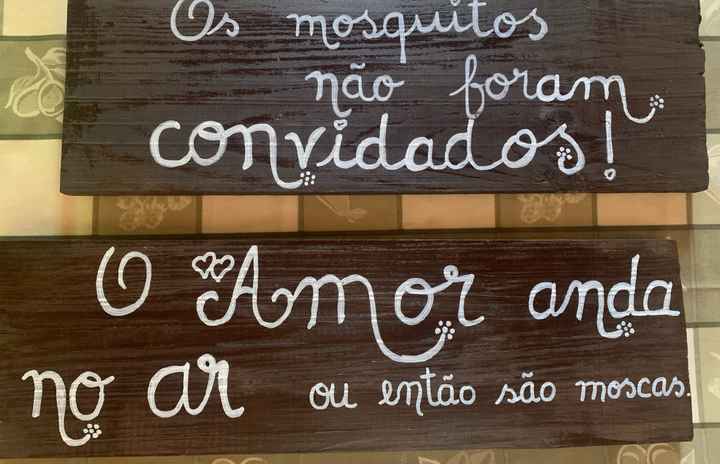 Os mosquitos
não foram
convidados!
O Amor anda
no ar ou então são moscas.